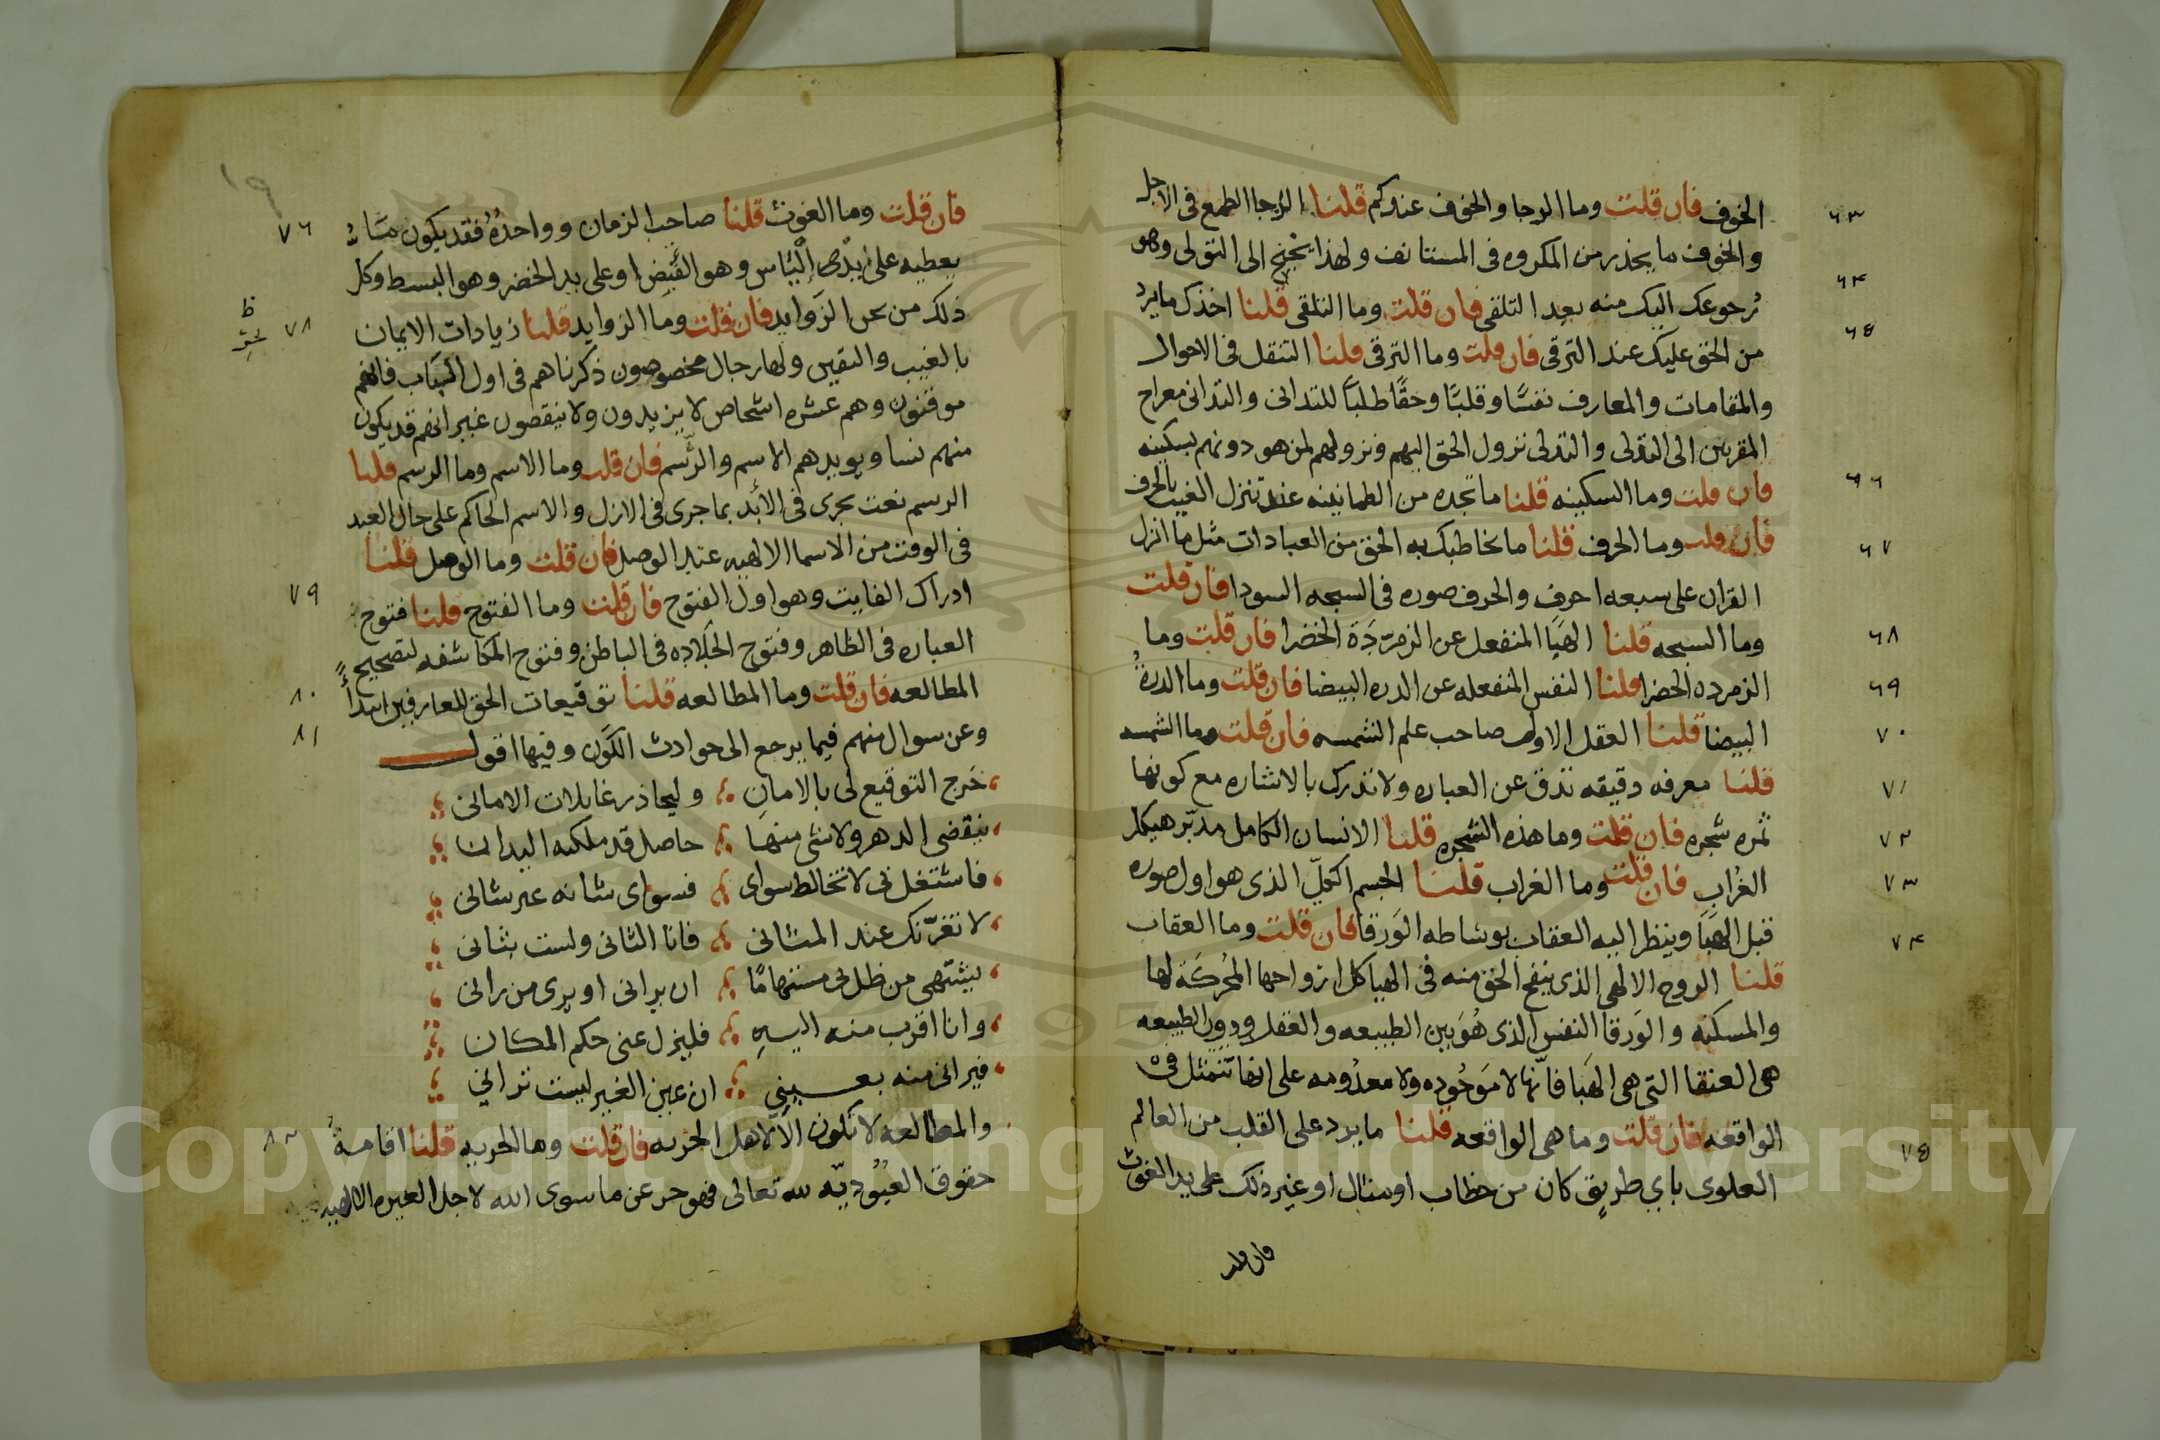 الخوف فان قلت وما الرجا والخوف عندكم قلنا الرجا الطمع فى الاجل
والخوف ما يحذر من المكروه فى المستانف ولهذا يجنح الى التولى وهو
رجوعك اليك منه بعد التلقى فان قلت وما التلقى قلنا اخذك ما يرد
من الحق عليك عند الترقى فان قلت وما الترقى قلنا التنقل فى الاحوال
والمقامات والمعارف نفسًا وقلبًا وحقًا طلبًا للتدانى والتدانى معراج
المقربين الى التدلى والتدلى نزول الحق اليهم ونزولهم لمن هو دونهم بسكينه
فان قلت وما السكينه قلنا ما تجده من الطمانينه عند تنزل الغيب بالحرف
فان قلت وما الحرف قلنا ما يخاطبك به الحق من العبادات مثل ما انزل
القران على سبعه احرف والحرف صوره فى السبحه السودا فان قلت
وما السبحه قلنا الهبا المنفعل عن الزمردة الخضرا فان قلت وما
الزمرده الخضرا قلنا النفس المنفعله عن الدره البيضا فان قلت وما الدرة
البيضا قلنا العقل الاول صاحب علم الشمسه فان قلت وما الشمسه
قلنا معرفه دقيقه تدق عن العباره ولا تدرك بالاشاره مع كونها
ثمره شجره فان قلت وما هذه الشجره قلنا الانسان الكامل مدبّر هيكل
الغراب فان قلت وما الغراب قلنا الجسم الكلّ الذى هو اول صوره
قبل الهبا وينظر اليه العقاب بوساطه الوَرقا فان قلت وما العقاب
قلنا الروح الالهى الذى ينفخ الحق منه فى الهياكل ارواحها المحُركَة لها
والمسكنه والوَرقا النفس الذى هُوَ بين الطبيعه والعقل ودون الطبيعه
هى العنقا التى هى الهَبا فانّها لا مَوجُوده ولا معدُومه على انها تتمثل فى
الواقعه فان قلت وما هى الواقعه قلنا ما يرد على القلب من العالم
العلوى باي طريقٍ كان من خطاب او مثال او غير ذلك على يد الغوث
فان قلت
٦٣
٦٤
٦٥
٦٦
٦٧
٦٨
٦٩
٧٠
٧١
٧٢
٧٣
٧٤
٧٥
١٩
فان قلت وما الغوث قلنا صاحب الزمان وواحدُهُ فقد يكون ما
يعطيه على يدى اليَاس وهو القبض او على يد الخضر وهو البسط وكل
ذلك من عين الزوايد فان قلت وما الزوايد قلنا زيادات الايمان
بالغيب واليقين ولها رجال مخصوصون ذكرناهم فى اول الكتاب فانهم
موقنون وهم عشره اشخاص لا يزيدون ولا ينقصون غير انهم قد يكون
منهم نسا ويوبدهم الاسم والرّسم فان قلت وما الاسم وما الرسم قلنا
الرسم نعت يجرى فى الأبد بما جرى فى الازل والاسم الحاكم على حال العبد
فى الوقت من الاسما الالهيه عند الوصل فان قلت وما الوصل قلنا
ادراك الفايت وهو اول الفتوح فان قلت وما الفتوح قلنا فتوح
العباره فى الظاهر وفتوح الحَلاده فى الباطن وفتوح المكاشفه لتصحيح
المطالعه فان قلت وما المطالعه قلنا توقيعات الحق للعارفين ابتدأً
وعن سوال منهم فيما يرجع الى حوادث الكَون وفيها اقول
خَرج التوقيع لى بالامانِ وليحاذر غايلات الامانى
ينقضى الدهر ولا شى منها حاصل قد ملكته اليدان
فاشتغل بى لا تخالط سواى فسواى شانه غير شانى
لا تغرّنك عند المثانى فانا الثانى ولست بثانى
يشتهى من ظل بى مستهامًا ان يرانى او يرى من رانى
وانا اقرب منه اليهِ فليزل عنى حكم المكان
فيرانى منه بعينى ان عين الغير ليست ترانى
والمطالعه لا تكون الا لاهل الحريه فان قلت وما الحريه قلنا اقامةُ
حقوق العبُوديّه لله تعالى فهو حر عن ما سوى الله لاجل الغيره الالهيه
٧٦
٧٨
٧٩
٨٠
٨١
٨٢
Copyright © King Saud University